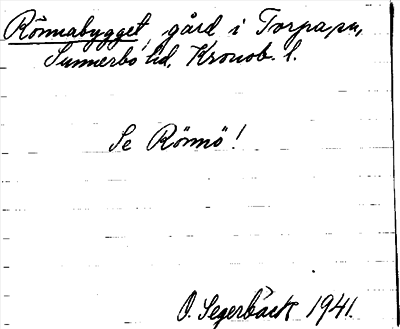 Rönnabygget, gård i Torpa sn,
Sunnerbo hd, Kronob. l.
Se Rönnö!
O. Segerbäck 1941.